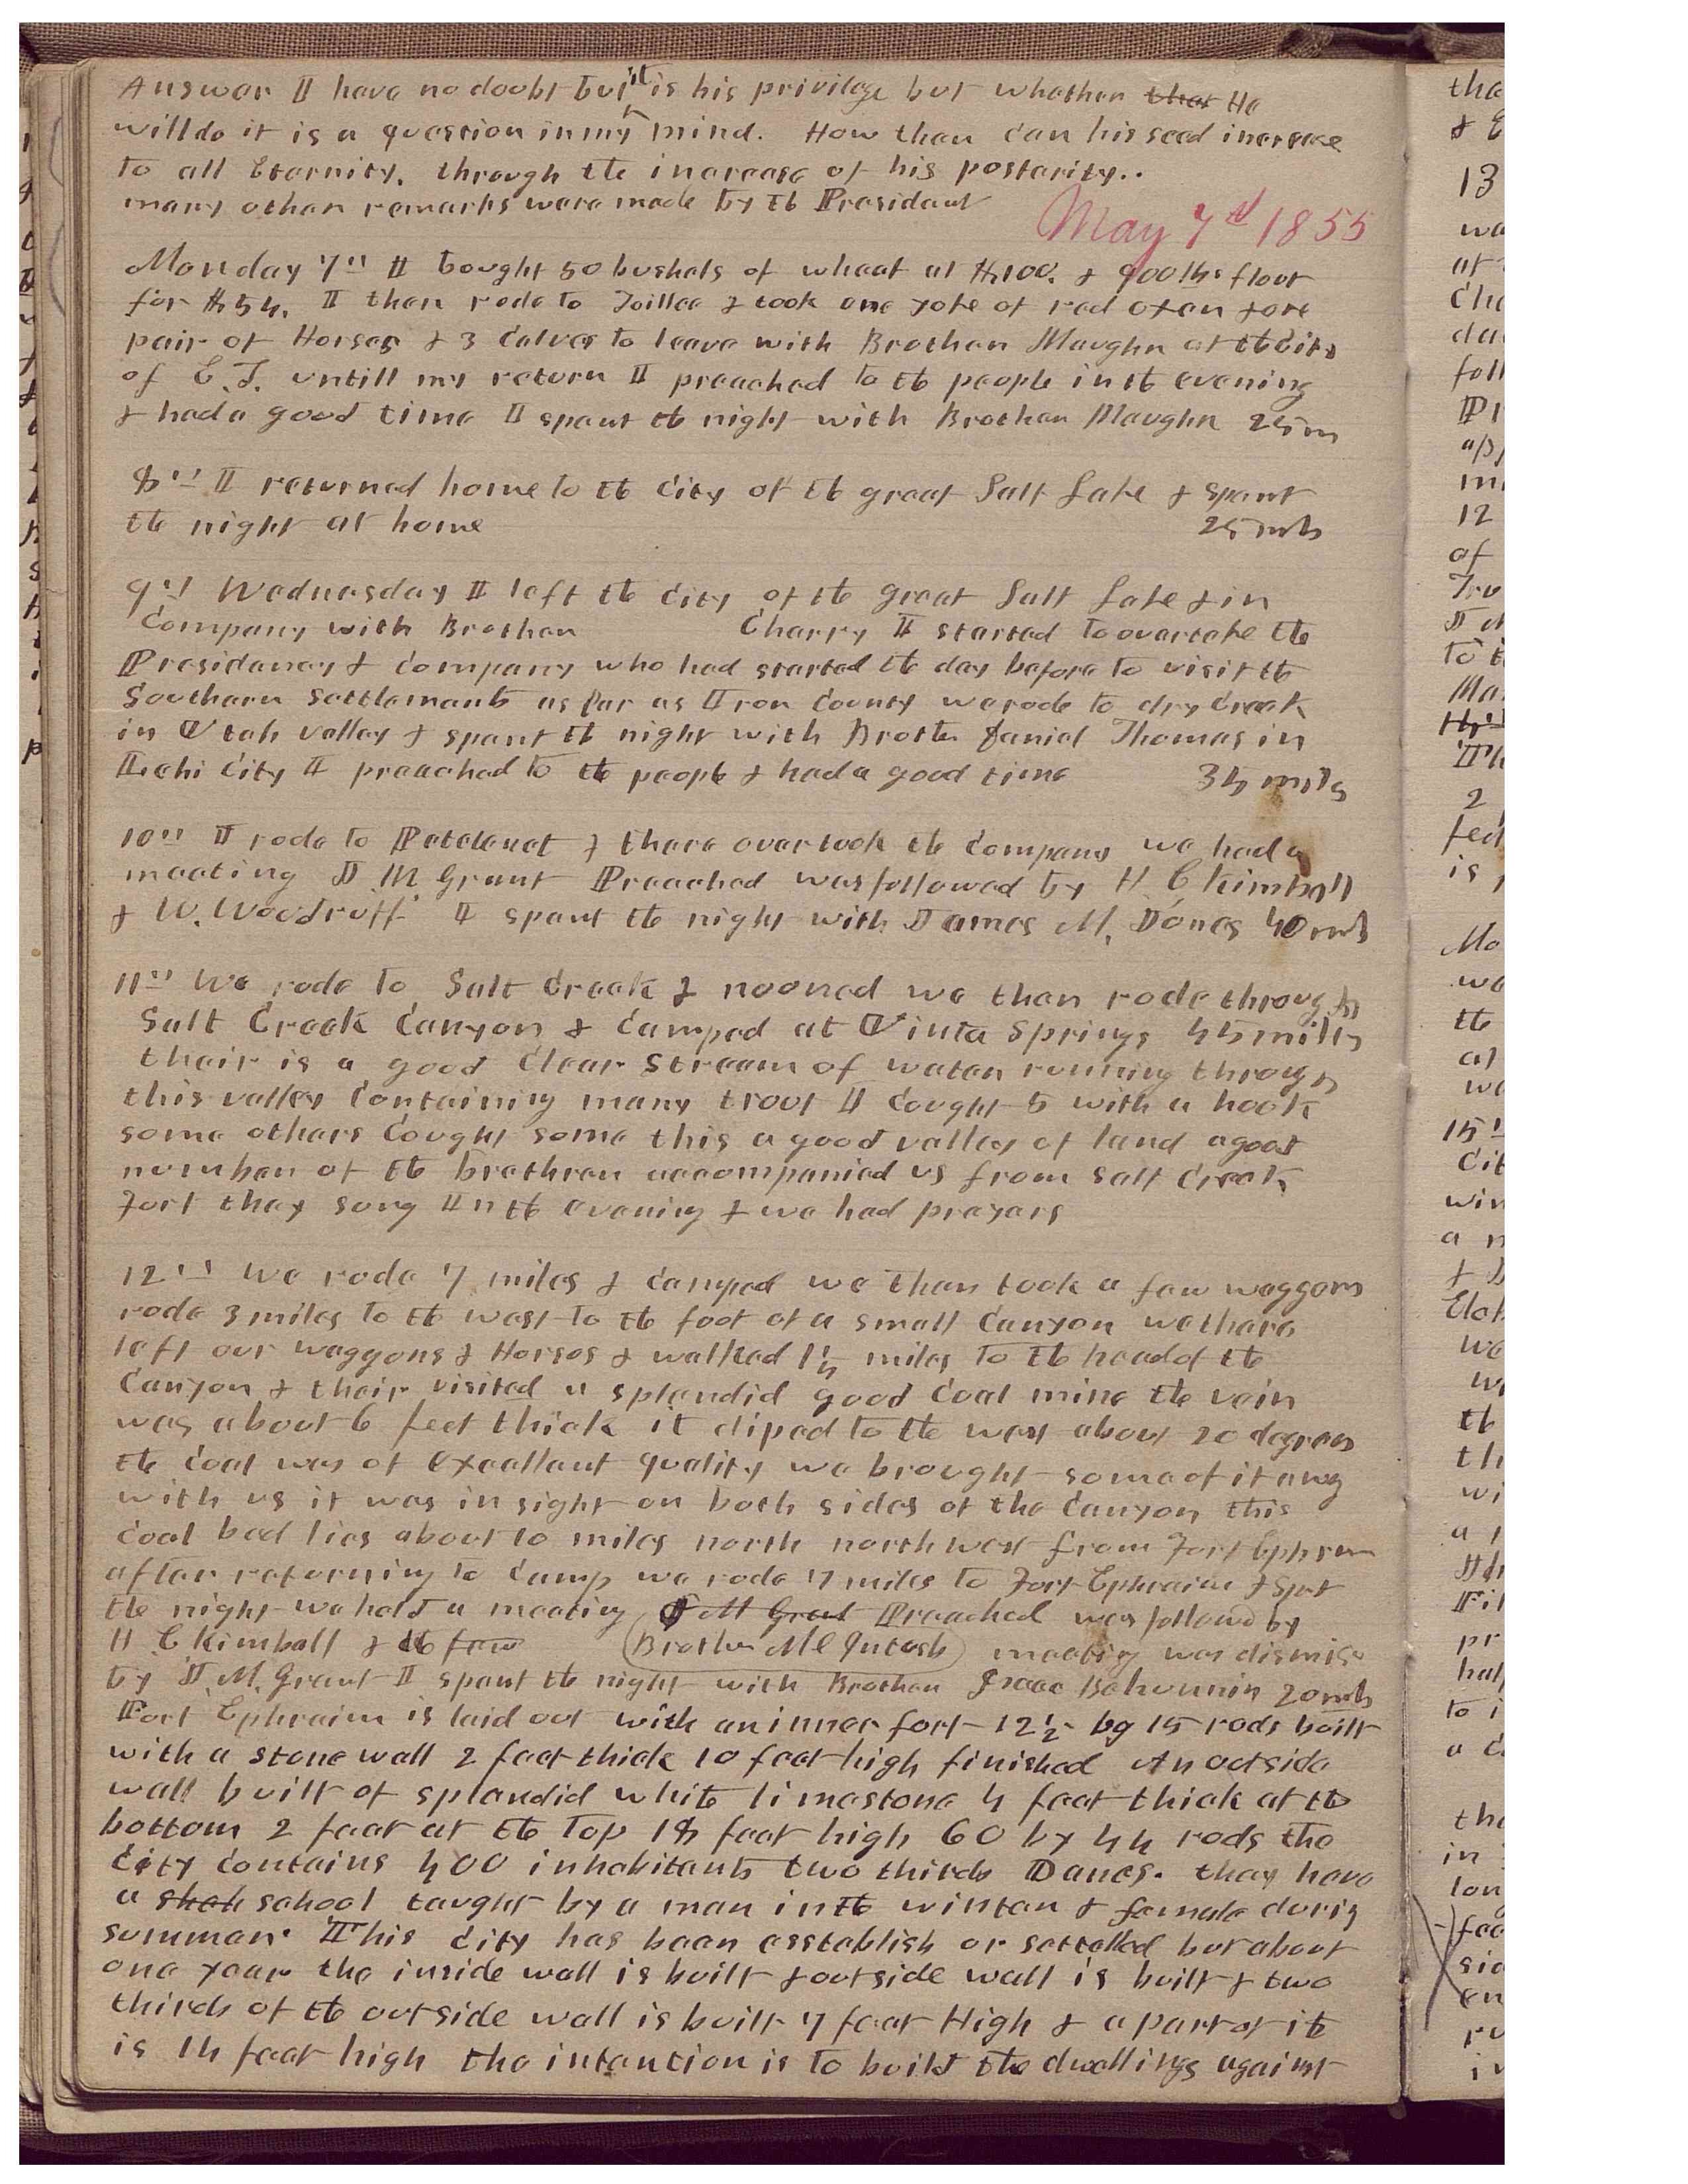 Answer I have no doubt but it is his privilege but whether that He
will do it is a question in my mind. How then can his seed increase
to all Eternity. through the increase of his posterity..
many other remarks were made by the President
May 7th 1855
Monday 7th I bought 50 bushels of wheat at $100. & 900 lbs flour
for $54. I then rode to Toillee & took one yoke of red oxen & one
pair of Horses & 3 Calves to leave with Brother Maughn at the City
of E.T. untill my return I preached to the people in the evening
& had a good time I spent the night with Brother Maughn 25 m
8th I returned home to the City of the great Salt Lake & spent
the night at home 25 mls
9th Wednesday I left the City of the great Salt Lake & in
Company with Brother Charry I started to overtake the
Presidency & company who had started the day before to visit the
Southern Settlements as far as Iron County we rode to dry Creek
in Utah valley & spent the night with Brother Daniel Thomas in
Lehi City I preached to the people & had a good time 35 mils
10th I rode to Peteteneet & there overtook the company we had a
meeting J M Grant Preached was followed by H C Kimball
& W. Woodruff I spent the night with James M. Jones 40 mls
11th We rode to Salt Creek & nooned we then rode through
Salt Creek Canyon & Camped at Uinta Springs 45 mils
their is a good Clear Stream of water running through
this valley Containing many trout I caught 5 with a hook
some others Cought some this a good valley of land a good
number of the brethren accompanied us from Salt Creek
Fort they sung In the evening & we had prayers
12th We rode 7 miles & camped we then took a few waggons
rode 3 miles to the west to the foot of a small Canyon we there
left our waggons & Horses & walked 1½ miles to the head of the
Canyon & their visited a splendid good Coal mine the vein
was about 6 feet thick it diped to the west about 20 degrees
the Coal was of excellent quality we brought some of it away
with us it was in sight on both sides of the Canyon this
Coal bed lies about 10 miles north north west from Fort Ephram
after returning to Camp we rode 7 miles to Fort Ephraim & spet
the night we held a meeting J M Grant Preached was followed by
H C Kimball & the few (Brother McIntosh) meeting was dismise
by J. M. Grant I spent the night with Brother Isaac Behunnin 20 mls
Fort Ephraim is laid out with an inner fort 12½ by 15 rods built
with a stone wall 2 feet thick 10 feet high finished An outside
wall built of splendid white limestone 4 feet thick at the
bottom 2 feet at the top 18 feet high 60 by 44 rods the
City contains 400 inhabitants two thirds Danes. they have
a shch school taught by a man in the winter & female durig
summer. This city has been esstablish or settelled but about
one year the inside wall is built & outside wall is built & two
thirds of the outside wall is built 7 feet High & a part of it
is 14 feet high the intention is to build the dwellings against